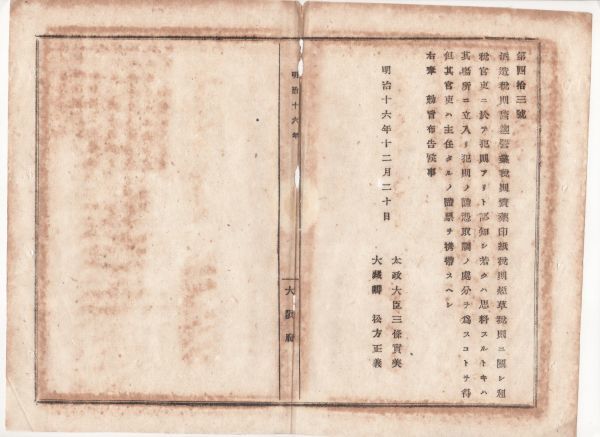 第四拾三號
酒造稅則醬麴營業稅則賣藥印紙稅則煙草稅則ニ關シ租
稅官吏ニ於テ犯則アリト認知シ若クハ思料スルトキハ
其塲所ニ立入リ犯則ノ證憑取調ノ處分ヲ爲スコトヲ得
但其官吏ハ主任タルノ證票ヲ携帶スヘシ
右奉 勅旨布告候事
明治十六年十二月二十日
太政大臣三條實美
大藏卿 松方正義
明治十六年
大阪府